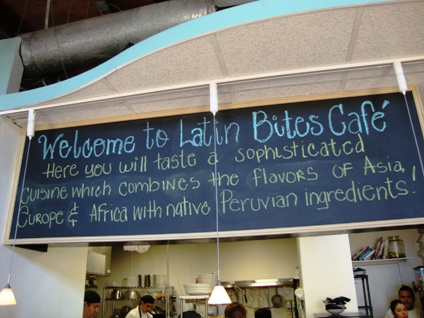 Welcome to Latin Bites Café
Here you will taste a sophisticated
cuisine which combines the flavors of Asia,
Europe & Africa with native Peruvian ingredients!